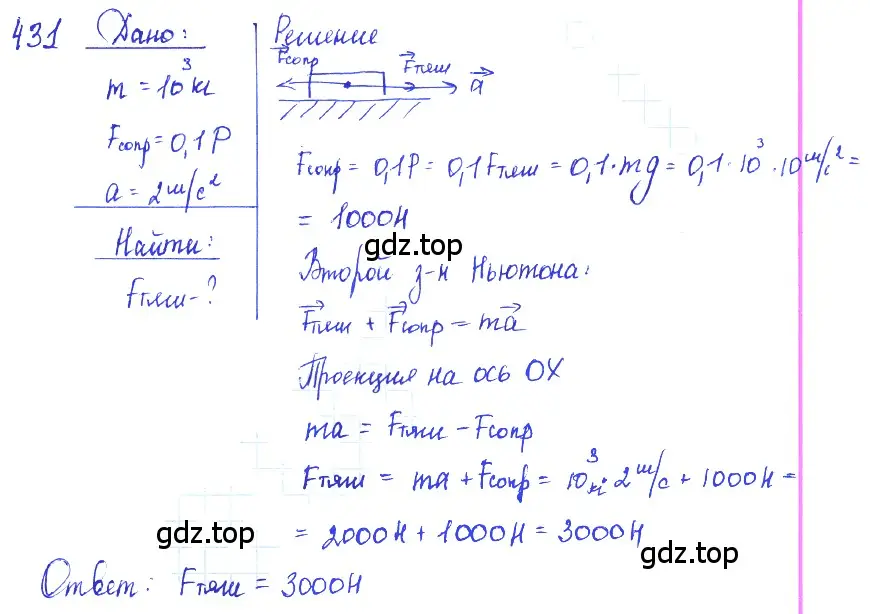 431 Дано:
m = 10³ кг
Fсопр = 0,1P
a = 2 м/с²
Найти:
Fтяги - ?
Решение
Fсопр Fтяги a
Fсопр = 0,1P = 0,1Fтяж = 0,1·mg = 0,1·10³·10 м/с² =
= 1000Н
gdz.top
Второй з-н Ньютона:
Fтяги + Fсопр = ma
Проекция на ось OX
ma = Fтяги - Fсопр
Fтяги = ma + Fсопр = 10³кг·2 м/с + 1000Н =
= 2000Н + 1000Н = 3000Н
gdz.top
gdz.top
Ответ: Fтяги = 3000Н